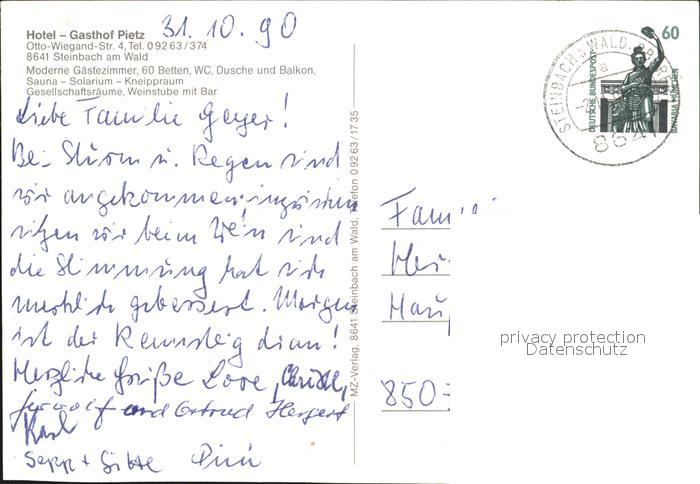 31.10.90
Hotel – Gasthof Pietz
Otto-Wiegand-Str. 4, Tel. 0 92 63 / 374
8641 Steinbach am Wald
Moderne Gästezimmer, 60 Betten, WC, Dusche und Balkon,
Sauna – Solarium – Kneippraum
Gesellschaftsräume, Weinstube mit Bar
Liebe Familie Geyer!
Bei Sturm u. Regen sind
wir angekommen, inzwischen
sitzen wir beim Wein und
die Stimmung hat sich
merklich gebessert. Morgen
ist der Rennsteig dran!
Herzliche Grüße Lore, Christl,
und Gertrud Hergert
Karl
Sepp +
MZ-Verlag, 8641 Steinbach am Wald, Telefon 0 92 63 / 17 35
60
DEUTSCHE BUNDESPOST
BAVARIA MÜNCHEN
STEINBACH a WALD
a
8641
Fam
Hau
850
privacy protection
Datenschutz